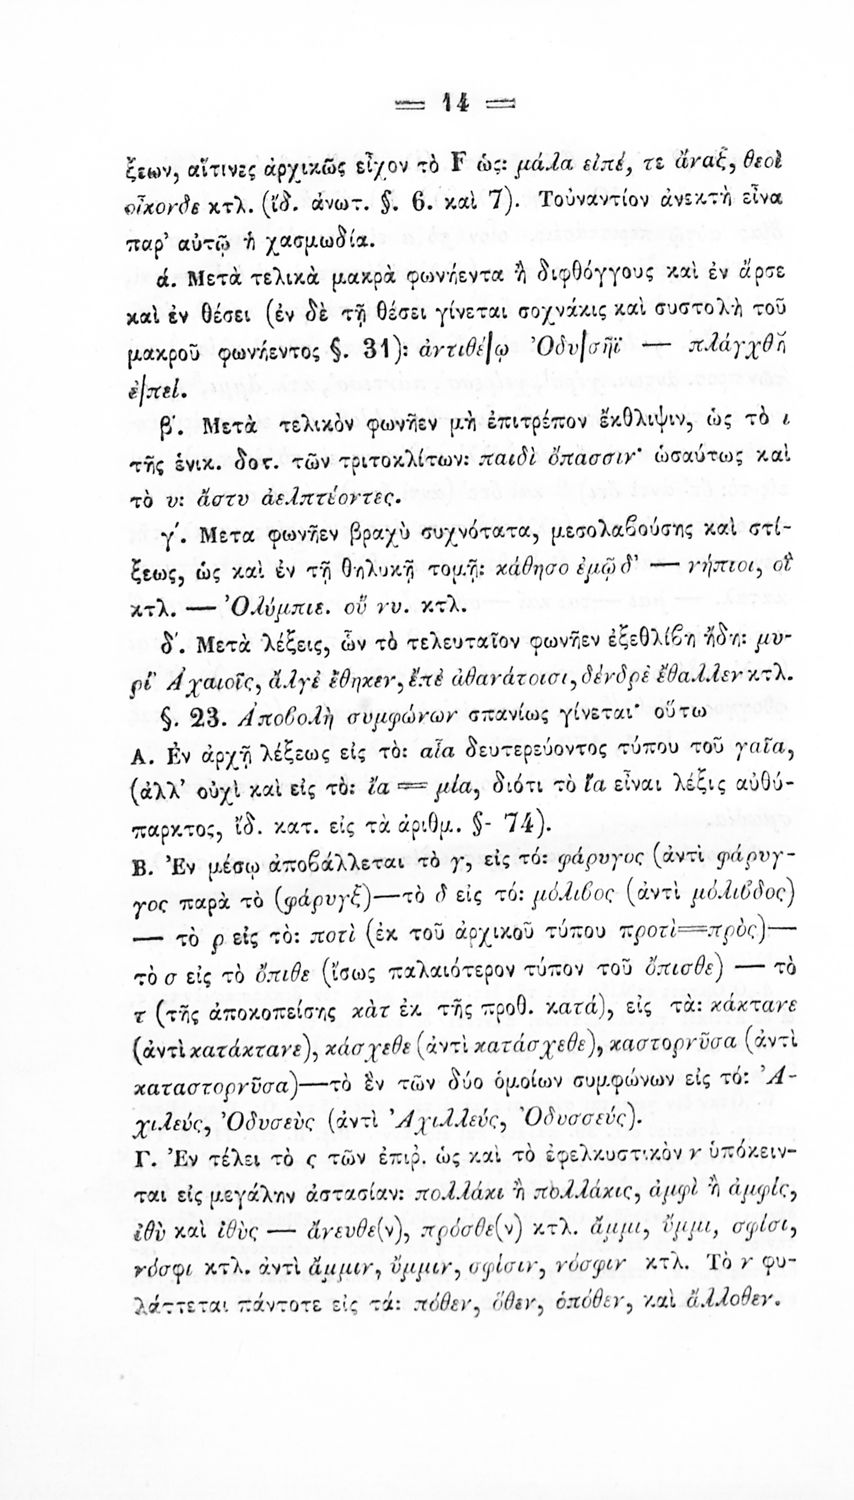 == 14 ==
ξεων, αἵτινες ἀρχικῶς εἶχον τὸ F ὡς: μάλα εἰπέ, τε ἄναξ, θεοὶ
οἶκονδε κτλ. (ἴδ. ἀνωτ. §. 6. καὶ 7). Τοὐναντίον ἀνεκτὴ εἶνα
παρ' αὐτῷ ἡ χασμωδία.
ά. Μετὰ τελικὰ μακρὰ φωνήεντα ἢ διφθόγγους καὶ ἐν ἄρσε
καὶ ἐν θέσει (ἐν δὲ τῇ θέσει γίνεται σοχνάκις καὶ συστολὴ τοῦ
μακροῦ φωνήεντος §. 31): ἀντιθέ|ῳ Ὀδυ|σῆϊ — πλάγχθη
ἐ|πεί.
β΄. Μετὰ τελικὸν φωνῆεν μὴ ἐπιτρέπον ἔκθλιψιν, ὡς τὸ ι
τῆς ἑνικ. δοτ. τῶν τριτοκλίτων: παιδὶ ὄπασσιν· ὡσαύτως καὶ
τὸ υ: ἄστυ ἀελπτέοντες.
γ΄. Μετα φωνῆεν βραχὺ συχνότατα, μεσολαβούσης καὶ στί-
ξεως, ὡς καὶ ἐν τῇ θηλυκῇ τομῇ: κάθησο ἐμῷ δ' — νήπιοι, οἳ
κτλ. — Ὀλύμπιε. οὔ νυ. κτλ.
δ΄. Μετὰ λέξεις, ὧν τὸ τελευταῖον φωνῆεν ἐξεθλίβη ἤδη: μυ-
ρί' Ἀχαιοῖς, ἄλγε' ἔθηκεν, ἔπε' ἀθανάτοισι, δένδρε' ἔθαλλεν κτλ.
§. 23. Ἀποβολὴ συμφώνων σπανίως γίνεται· οὕτω
Α. Ἐν ἀρχῇ λέξεως εἰς τὸ: αἶα δευτερεύοντος τύπου τοῦ γαῖα,
(ἀλλ' οὐχὶ καὶ εἰς τὸ: ἴα = μία, διότι τὸ ἴα εἶναι λέξις αὐθύ-
παρκτος, ἴδ. κατ. εἰς τὰ ἀριθμ. §- 74).
Β. Ἐν μέσῳ ἀποβάλλεται τὸ γ, εἰς τό: φάρυγος (ἀντὶ φάρυγ-
γος παρὰ τὸ (φάρυγξ)—τὸ δ εἰς τό: μόλιβος (ἀντὶ μόλιβδος)
— τὸ ρ εἰς τὸ: ποτὶ (ἐκ τοῦ ἀρχικοῦ τύπου προτὶ=πρὸς)—
τὸ σ εἰς τὸ ὄπιθε (ἴσως παλαιότερον τύπον τοῦ ὄπισθε) — τὸ
τ (τῆς ἀποκοπείσης κὰτ ἐκ τῆς προθ. κατά), εἰς τὰ: κάκτανε
(ἀντὶ κατάκτανε), κάσχεθε (ἀντὶ κατάσχεθε), καστορνῦσα (ἀντὶ
καταστορνῦσα)—τὸ ἓν τῶν δύο ὁμοίων συμφώνων εἰς τό: Ἀ-
χιλεύς, Ὀδυσεὺς (ἀντὶ Ἀχιλλεύς, Ὀδυσσεύς).
Γ. Ἐν τέλει τὸ ς τῶν ἐπιρ. ὡς καὶ τὸ ἐφελκυστικὸν ν ὑπόκειν-
ται εἰς μεγάλην ἀστασίαν: πολλάκι ἢ πολλάκις, ἀμφὶ ἢ ἀμφίς,
ἰθὺ καὶ ἰθὺς — ἄνευθε(ν), πρόσθε(ν) κτλ. ἄμμι, ὔμμι, σφίσι,
νόσφι κτλ. ἀντὶ ἄμμιν, ὔμμιν, σφίσιν, νόσφιν κτλ. Τὸ ν φυ-
λάττεται πάντοτε εἰς τά: πόθεν, ὅθεν, ὁπόθεν, καὶ ἄλλοθεν.